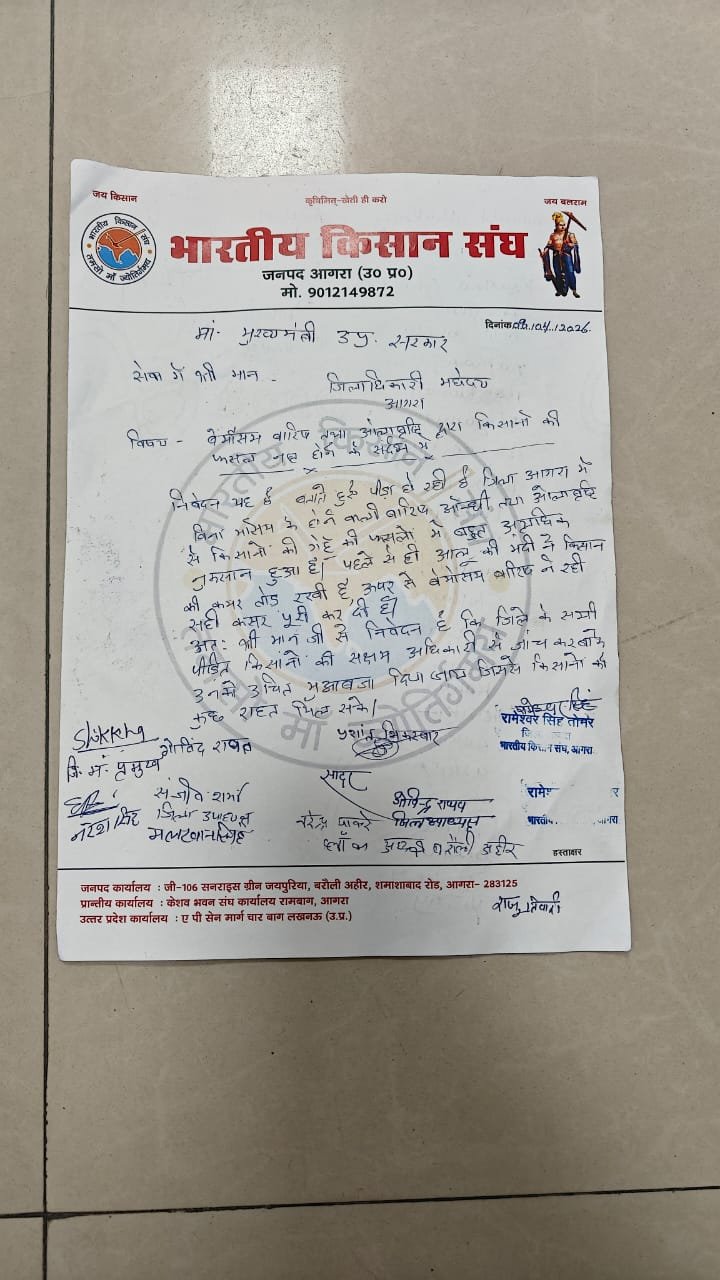 जय किसान
कृषिमित्-खेती ही करो
जय बलराम
भारतीय किसान संघ
तमसो माँ ज्योतिर्गमय
भारतीय किसान संघ
जनपद आगरा (उ० प्र०)
मो. 9012149872
दिनांक 04.12026
मा. मुख्यमंत्री उ.प्र. सरकार
सेवा में श्री मान -
जिलाधिकारी महोदय
आगरा
विषय - वेमौसम वारिष तथा ओलावृष्टि द्वारा किसानो की
फसल नष्ट होने के संदर्भ में
निवेदन यह है बताते हुऐ पीड़ा हो रही है जिला आगरा में
विना मौसम के होने वाली वारिष ऑन्धी तथा ओलावृष्टि
से किसानो की गेहूं की फसलो में बहुत अत्यधिक
नुकसान हुआ है। पहले से ही आलू की मंदी ने किसान
की कमर तोड़ रखी है, ऊपर से वेमौसम वारिष ने रही
सही कसर पूरी कर दी है।
अतः श्री मान जी से निवेदन है कि जिले के सभी
पीड़ित किसानो की सक्षम अधिकारी से जांच करवाके
उनको उचित मुआबजा दिया जाय जिससे किसानो को
कुछ राहत मिल सके।
रामेश्वर सिंह तोमर
भारतीय किसान संघ, आगरा
जि. मं. प्रमुख
गोविंद
प्रशांत
सादर
संजीव शर्मा
जिला उपाध्यक्ष
नरेश सिंह
नरेन्द्र
राघव
जिलाध्यक्ष
ब्लॉक अध्यक्ष बरौली अहीर
रामे
र
भारतीय
आगरा
हस्ताक्षर
जनपद कार्यालय : जी-106 सनराइस ग्रीन जयपुरिया, बरौली अहीर, शमाशाबाद रोड, आगरा- 283125
प्रान्तीय कार्यालय : केशव भवन संघ कार्यालय रामबाग, आगरा
उत्तर प्रदेश कार्यालय : ए पी सेन मार्ग चार बाग लखनऊ (उ.प्र.)
राजू तिवारी